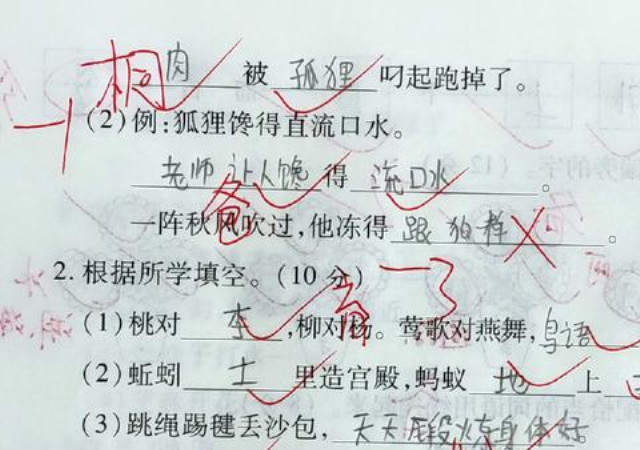 肉 被 狐狸 叼起跑掉了。
(2)例:狐狸馋得直流口水。
老师让人馋 得 流口水。
一阵秋风吹过,他冻得 跟狗样。
2.根据所学填空。(10分)
(1)桃对 李,柳对杨。莺歌对燕舞,鸟语
(2)蚯蚓 土 里造宫殿,蚂蚁 地 上
(3)跳绳踢毽丢沙包,天天 身体好。